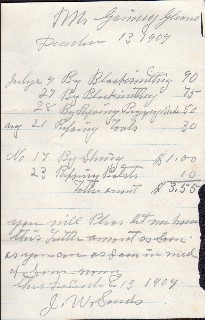 Mr Gainey Gleens
December 13 1909
July 9 By Blacksmithing 90
27 By Blacksmithing 75
28 By Repairing 50
Aug 21 Repairing Tools 30
No 17 By Shoing $1.00
23 Repairing 10
Totle amount $3.55
you will Pleas let me have
this Totle amount as Soon
as you can as I am in need
of Some money
this December 13 1909
J. W. Sands